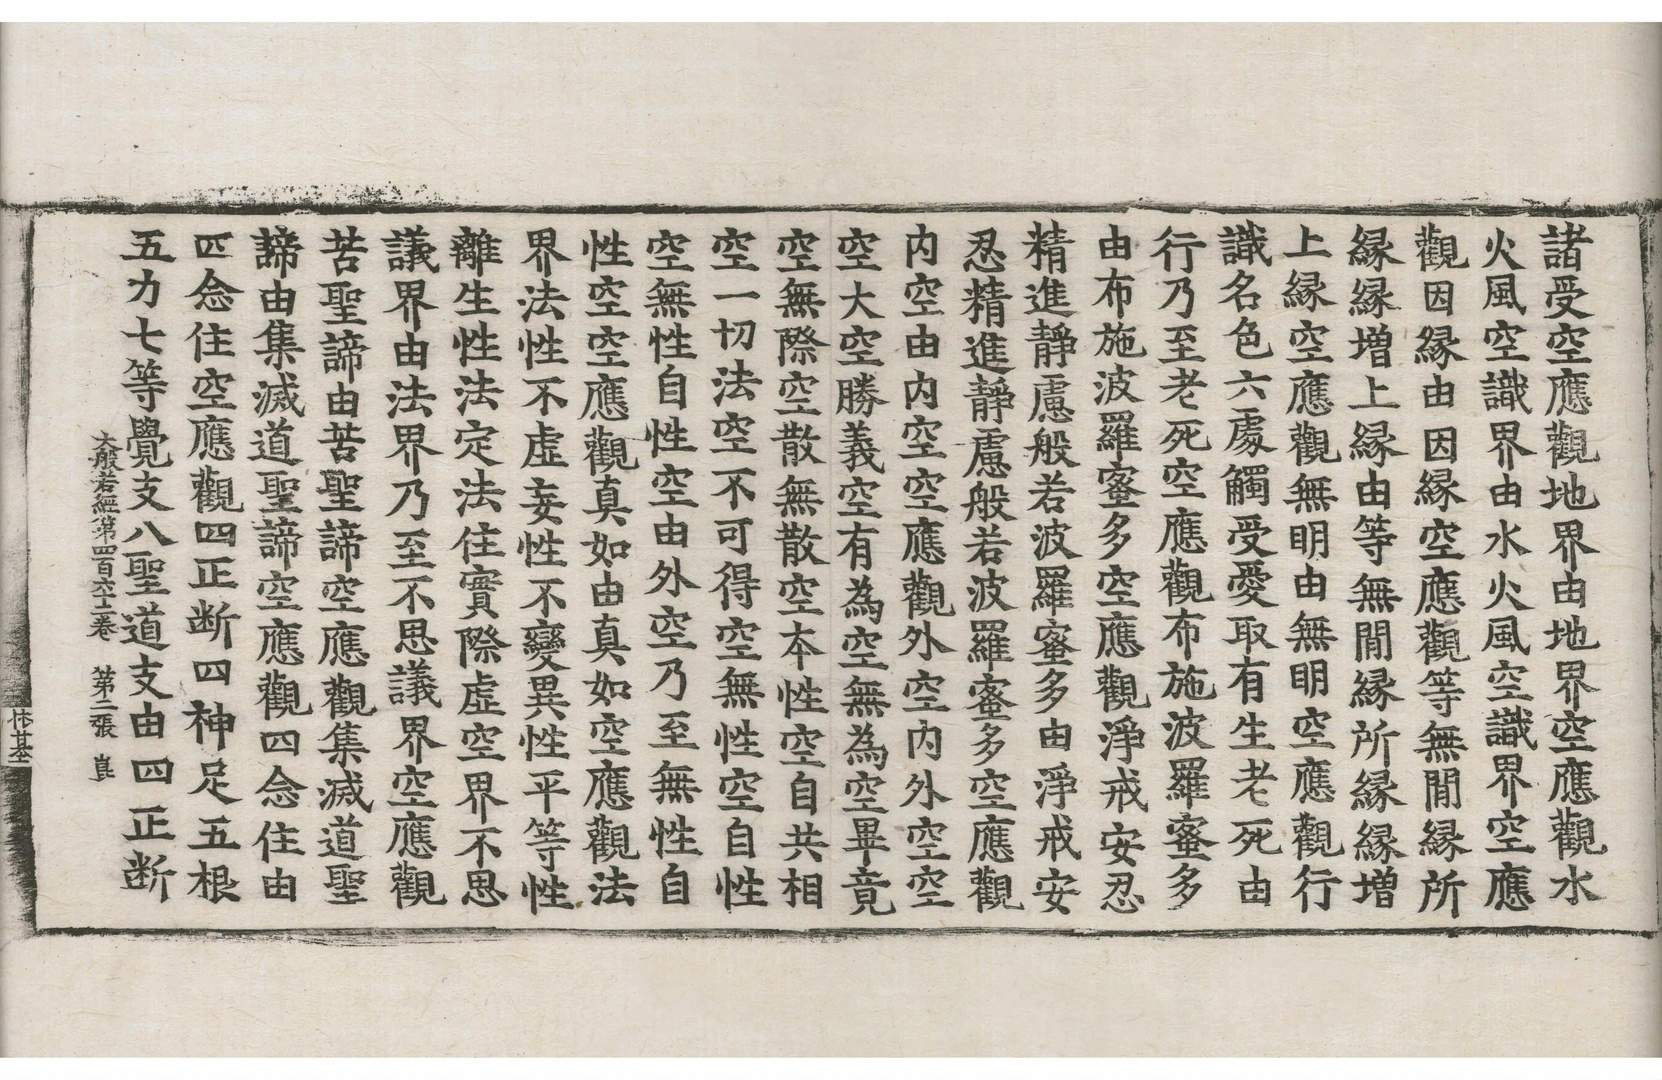 諸受空應觀地界由地界空應觀水
火風空識界由水火風空識界空應
觀因緣由因緣空應觀等無間緣所
緣緣增上緣由等無間緣所緣緣增
上緣空應觀無明由無明空應觀行
識名色六處觸受愛取有生老死由
行乃至老死空應觀布施波羅蜜多
由布施波羅蜜多空應觀淨戒安忍
精進靜慮般若波羅蜜多由淨戒安
忍精進靜慮般若波羅蜜多空應觀
內空由內空空應觀外空內外空空
空大空勝義空有為空無為空畢竟
空無際空散無散空本性空自共相
空一切法空不可得空無性空自性
空無性自性空由外空乃至無性自
性空空應觀真如由真如空應觀法
界法性不虛妄性不變異性平等性
離生性法定法住實際虛空界不思
議界由法界乃至不思議界空應觀
苦聖諦由苦聖諦空應觀集滅道聖
諦由集滅道聖諦空應觀四念住由
四念住空應觀四正断四神足五根
五力七等覺支八聖道支由四正断
大般若經第四百六十二卷 第二張